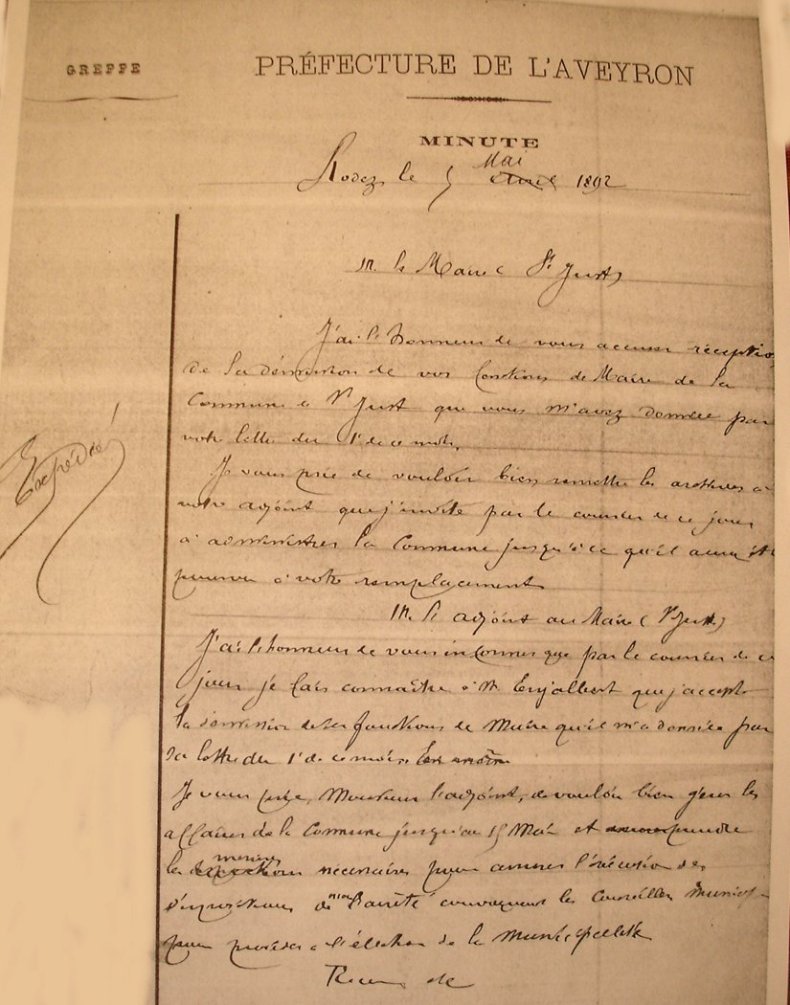 GREFFE
PRÉFECTURE DE L'AVEYRON
MINUTE
Rodez le 5 Mai 1892
M. le Maire (St Just)
J'ai l'honneur de vous accuser réception
de la démission de vos fonctions de Maire de la
Commune de St Just que vous m'avez donnée par
votre lettre du 1er de ce mois.
Je vous prie de vouloir bien remettre les archives à
votre adjoint que j'invite par le courrier de ce jour
à administrer la Commune jusqu'à ce qu'il aura été
pourvu à votre remplacement
Expédié
M. l'adjoint au Maire (St Just)
J'ai l'honneur de vous informer que par le courrier de ce
jour je fais connaître à M. Enjalbert que j'accepte
la démission de ses fonctions de Maire qu'il m'a donnée par
sa lettre du 1er de ce mois.
Je vous prie, Monsieur l'adjoint, de vouloir bien gérer les
affaires de la Commune jusqu'au 15 Mai et prendre
les mesures nécessaires pour assurer l'exécution des
dispositions de mon arrêté convoquant les Conseillers Municip
pour procéder à l'élection de la Municipalité